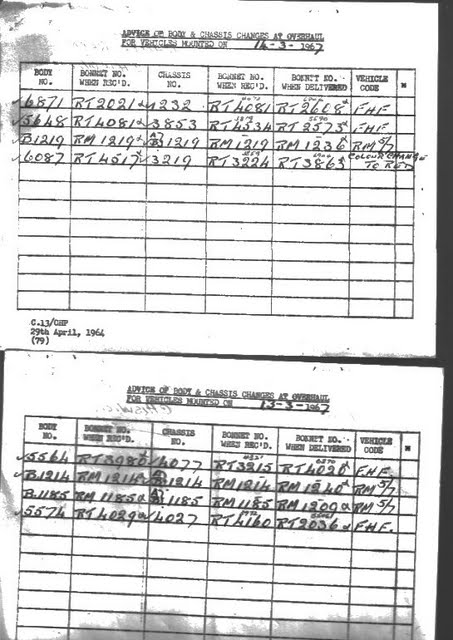 ADVICE OF BODY & CHASSIS CHANGES AT OVERHAUL
FOR VEHICLES MOUNTED ON 14-3-1967
BODY NO. BONNET NO. WHEN REC'D. CHASSIS NO. BONNET NO. WHEN REC'D. BONNET NO. WHEN DELIVERED VEHICLE CODE
6871 RT2021 1232 RT4081 RT2668 FHF
5648 RT4081 3853 RT4534 RT2573 FHF
B1219 RM1219 B1219 RM1219 RM1236 RM 5/7
6087 RT4517 3219 RT3224 RT3863 COLOUR CHANGE TO RED
C.13/CHP
29th April, 1964
(79)
ADVICE OF BODY & CHASSIS CHANGES AT OVERHAUL
FOR VEHICLES MOUNTED ON 13-3-1967
BODY NO. BONNET NO. WHEN REC'D. CHASSIS NO. BONNET NO. WHEN REC'D. BONNET NO. WHEN DELIVERED VEHICLE CODE
5564 4077 RT3215 RT4026 FHF
B1214 RM1214 B1214 RM1214 RM1240 RM 5/7
B1185 RM1185a 1185 RM1185 RM1209a RM 5/7
5574 RT4029a 4027 RT4160 RT2036a FHF.